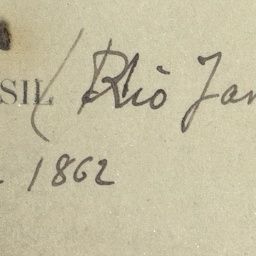 SIL ( Rio Jan
1862